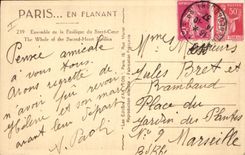 PARIS... EN FLANANT
239 Ensemble de la Basilique du Sacré-Cœur
The Whole of the Sacred-Heart
Pensée amicale
à vous tous.
Avons regretté de
n'avoir pu revoir
Hélène et son mari
avant leur départ
A. Paoli
Mmes
Jules Bret et
Rambaud
Place du
Jardin des Plantes
No 2 Marseille
B.d.Rh.
50c